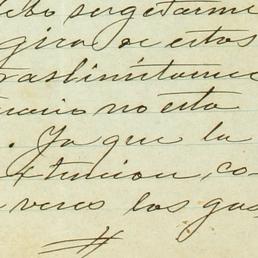 debo sugetarme
gira de estas
traslimitamie
nario no esta
. Ya que la
tencion, co-
veces los gas